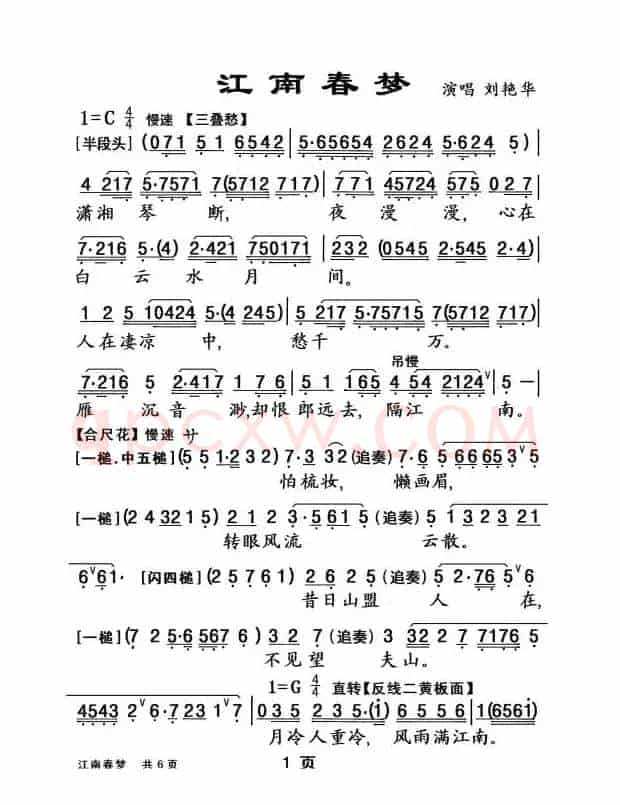 江南春梦 演唱 刘艳华
1=C 4/4 慢速 【三叠愁】
[半段头] (071 5 1 6542 | 5·65654 2624 5·624 5) |
4 217 5·7571 7(5712 717) | 771 45724 575 027 |
潇湘琴断, 夜漫漫, 心在
7·216 5·(4) 2·421 750171 | 232 (0545 2·545 2·4) |
白云水月间。
1 2 5 10424 5·(4 245) | 5 217 5·75715 7(5712 717) |
人在凄凉中, 愁千万。
吊慢
7·216 5 2·417 176 | 5 1 165 4 54 2124ᵛ | 5 — |
雁沉音渺,却恨郎远去,隔江南。
【合尺花】慢速 サ
[一槌.中五槌] (5 5 1·2 3 2) 7·3 32 (追奏) 7·6 5 66653ᵛ5
怕梳妆, 懒画眉,
[一槌] (2 43215) 2 1 2 3·5615 (追奏) 5 1323231
转眼风流云散。
6ᵛ61· [闪四槌] (25761) 2 6 2 5 (追奏) 5 2·76 5ᵛ6
昔日山盟人在,
[一槌] (7 2 5·6 5676) 3 2 7 (追奏) 3 32 2 7 7176 5
不见望夫山。
1=G 4/4 直转【反线二黄板面】
4543 2ᵛ6·723 1ᵛ7 | 035 235·(i) 6 5 6 5 | 1 (656i) |
月冷人重冷, 风雨满江南。
江南春梦 共6页 1 页
qpcxw.com